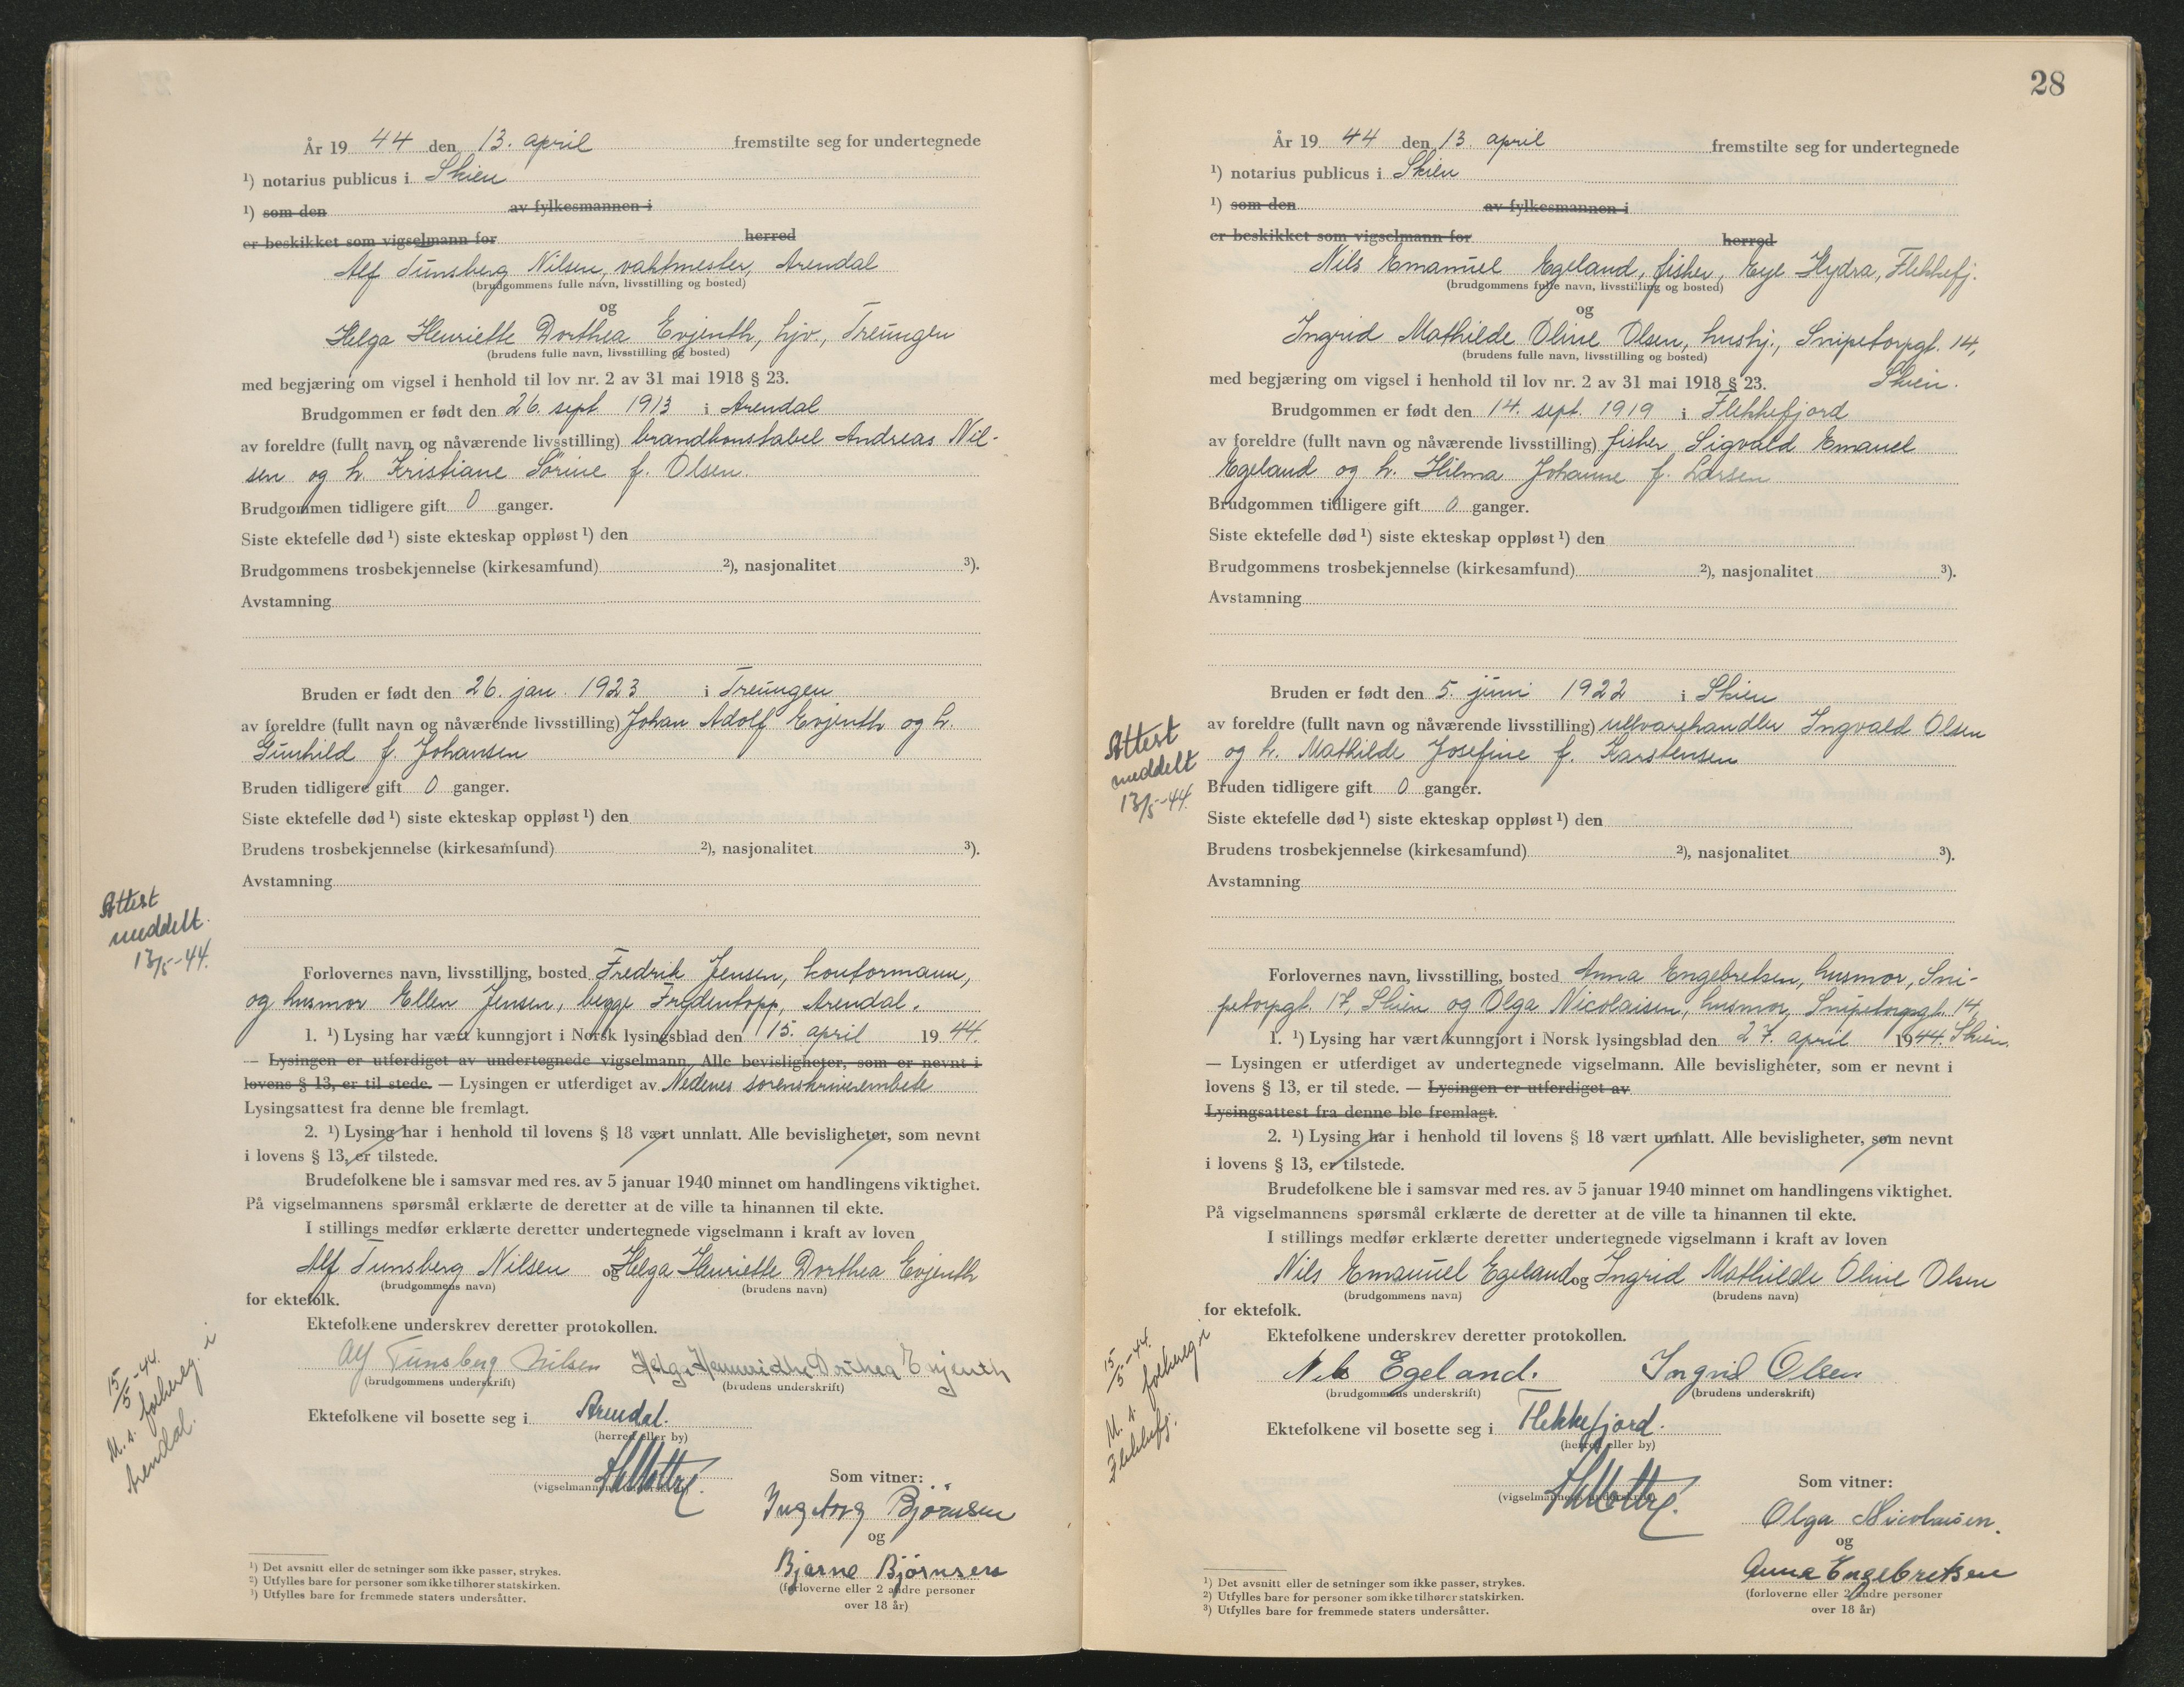 År 19 44 den 13. april fremstilte seg for undertegnede
¹) notarius publicus i Skien
¹) som den av fylkesmannen i
er beskikket som vigselmann for herred
Alf Tunsberg Nilsen, vaktmester, Arendal
(brudgommens fulle navn, livsstilling og bosted)
og
Helga Henriette Dorthea Evjenth, hjv., Treungen
(brudens fulle navn, livsstilling og bosted)
med begjæring om vigsel i henhold til lov nr. 2 av 31 mai 1918 § 23.
Brudgommen er født den 26. sept. 1913 i Arendal
av foreldre (fullt navn og nåværende livsstilling) brandkonstabel Andreas Nil-
sen og h. Kristiane Sørine f. Olsen.
Brudgommen tidligere gift 0 ganger.
Siste ektefelle død ¹) siste ekteskap oppløst ¹) den
Brudgommens trosbekjennelse (kirkesamfund) ²), nasjonalitet ³).
Avstamning
Bruden er født den 26. jan. 1923 i Treungen
av foreldre (fullt navn og nåværende livsstilling) Johan Adolf Evjenth og h.
Gunhild f. Johansen
Bruden tidligere gift 0 ganger.
Siste ektefelle død ¹) siste ekteskap oppløst ¹) den
Brudens trosbekjennelse (kirkesamfund) ²), nasjonalitet ³).
Avstamning
Attest
meddelt
13/5-44.
Forlovernes navn, livsstilling, bosted Fredrik Jensen, kontormann,
og husmor Ellen Jensen, begge Frydentopp, Arendal.
1. ¹) Lysing har vært kunngjort i Norsk lysingsblad den 15. april 19 44.
— Lysingen er utferdiget av undertegnede vigselmann. Alle bevisligheter, som er nevnt i
lovens § 13, er til stede. — Lysingen er utferdiget av Nedenes sorenskriverembete
Lysingsattest fra denne ble fremlagt.
2. ¹) Lysing har i henhold til lovens § 18 vært unnlatt. Alle bevisligheter, som nevnt
i lovens § 13, er tilstede.
Brudefolkene ble i samsvar med res. av 5 januar 1940 minnet om handlingens viktighet.
På vigselmannens spørsmål erklærte de deretter at de ville ta hinannen til ekte.
I stillings medfør erklærte deretter undertegnede vigselmann i kraft av loven
Alf Tunsberg Nilsen og Helga Henriette Dorthea Evjenth
(brudgommens navn) (brudens navn)
for ektefolk.
Ektefolkene underskrev deretter protokollen.
Alf Tunsberg Nilsen Helga Dorthea Evjenth
(brudgommens underskrift) (brudens underskrift)
15/5-44.
M. s. folkereg. i
Arendal.
Ektefolkene vil bosette seg i Arendal.
(herred eller by)
(vigselmannens underskrift)
Som vitner:
Ingeborg Bjørnsen
og
Bjarne Bjørnsen
(forloverne eller 2 andre personer
over 18 år)
¹) Det avsnitt eller de setninger som ikke passer, strykes.
²) Utfylles bare for personer som ikke tilhører statskirken.
³) Utfylles bare for fremmede staters undersåtter.
28
År 19 44 den 13. april fremstilte seg for undertegnede
¹) notarius publicus i Skien
¹) som den av fylkesmannen i
er beskikket som vigselmann for herred
Nils Emanuel Egeland, fisker, Eje Hydra, Flekkefj.
(brudgommens fulle navn, livsstilling og bosted)
og
Ingrid Mathilde Oline Olsen, hushj., Snipetorpgt. 14,
(brudens fulle navn, livsstilling og bosted)
med begjæring om vigsel i henhold til lov nr. 2 av 31 mai 1918 § 23. Skien.
Brudgommen er født den 14. sept. 1919 i Flekkefjord
av foreldre (fullt navn og nåværende livsstilling) fisker Sigvald Emanuel
Egeland og h. Hilma Johanne f. Larsen
Brudgommen tidligere gift 0 ganger.
Siste ektefelle død ¹) siste ekteskap oppløst ¹) den
Brudgommens trosbekjennelse (kirkesamfund) ²), nasjonalitet ³).
Avstamning
Bruden er født den 5. juni 1922 i Skien
av foreldre (fullt navn og nåværende livsstilling) ullvarehandler Ingvald Olsen
og h. Mathilde Josefine f. Karstensen
Attest
meddelt
13/5-44.
Bruden tidligere gift 0 ganger.
Siste ektefelle død ¹) siste ekteskap oppløst ¹) den
Brudens trosbekjennelse (kirkesamfund) ²), nasjonalitet ³).
Avstamning
Forlovernes navn, livsstilling, bosted Anna Engebretsen, husmor, Sni-
petorpgt. 17, Skien og Olga Nicolaisen, husmor, Snipetorpgt. 14,
1. ¹) Lysing har vært kunngjort i Norsk lysingsblad den 27. april 1944. Skien.
— Lysingen er utferdiget av undertegnede vigselmann. Alle bevisligheter, som er nevnt i
lovens § 13, er til stede. — Lysingen er utferdiget av
Lysingsattest fra denne ble fremlagt.
2. ¹) Lysing har i henhold til lovens § 18 vært unnlatt. Alle bevisligheter, som nevnt
i lovens § 13, er tilstede.
Brudefolkene ble i samsvar med res. av 5 januar 1940 minnet om handlingens viktighet.
På vigselmannens spørsmål erklærte de deretter at de ville ta hinannen til ekte.
I stillings medfør erklærte deretter undertegnede vigselmann i kraft av loven
Nils Emanuel Egeland og Ingrid Mathilde Oline Olsen
(brudgommens navn) (brudens navn)
for ektefolk.
Ektefolkene underskrev deretter protokollen.
Nils Egeland. Ingrid Olsen
(brudgommens underskrift) (brudens underskrift)
15/5-44.
M. s. folkereg. i
Flekkefj.
Ektefolkene vil bosette seg i Flekkefjord.
(herred eller by)
(vigselmannens underskrift)
Som vitner:
Olga Nicolaisen.
og
Anna Engebretsen
(forloverne eller 2 andre personer
over 18 år)
¹) Det avsnitt eller de setninger som ikke passer, strykes.
²) Utfylles bare for personer som ikke tilhører statskirken.
³) Utfylles bare for fremmede staters undersåtter.